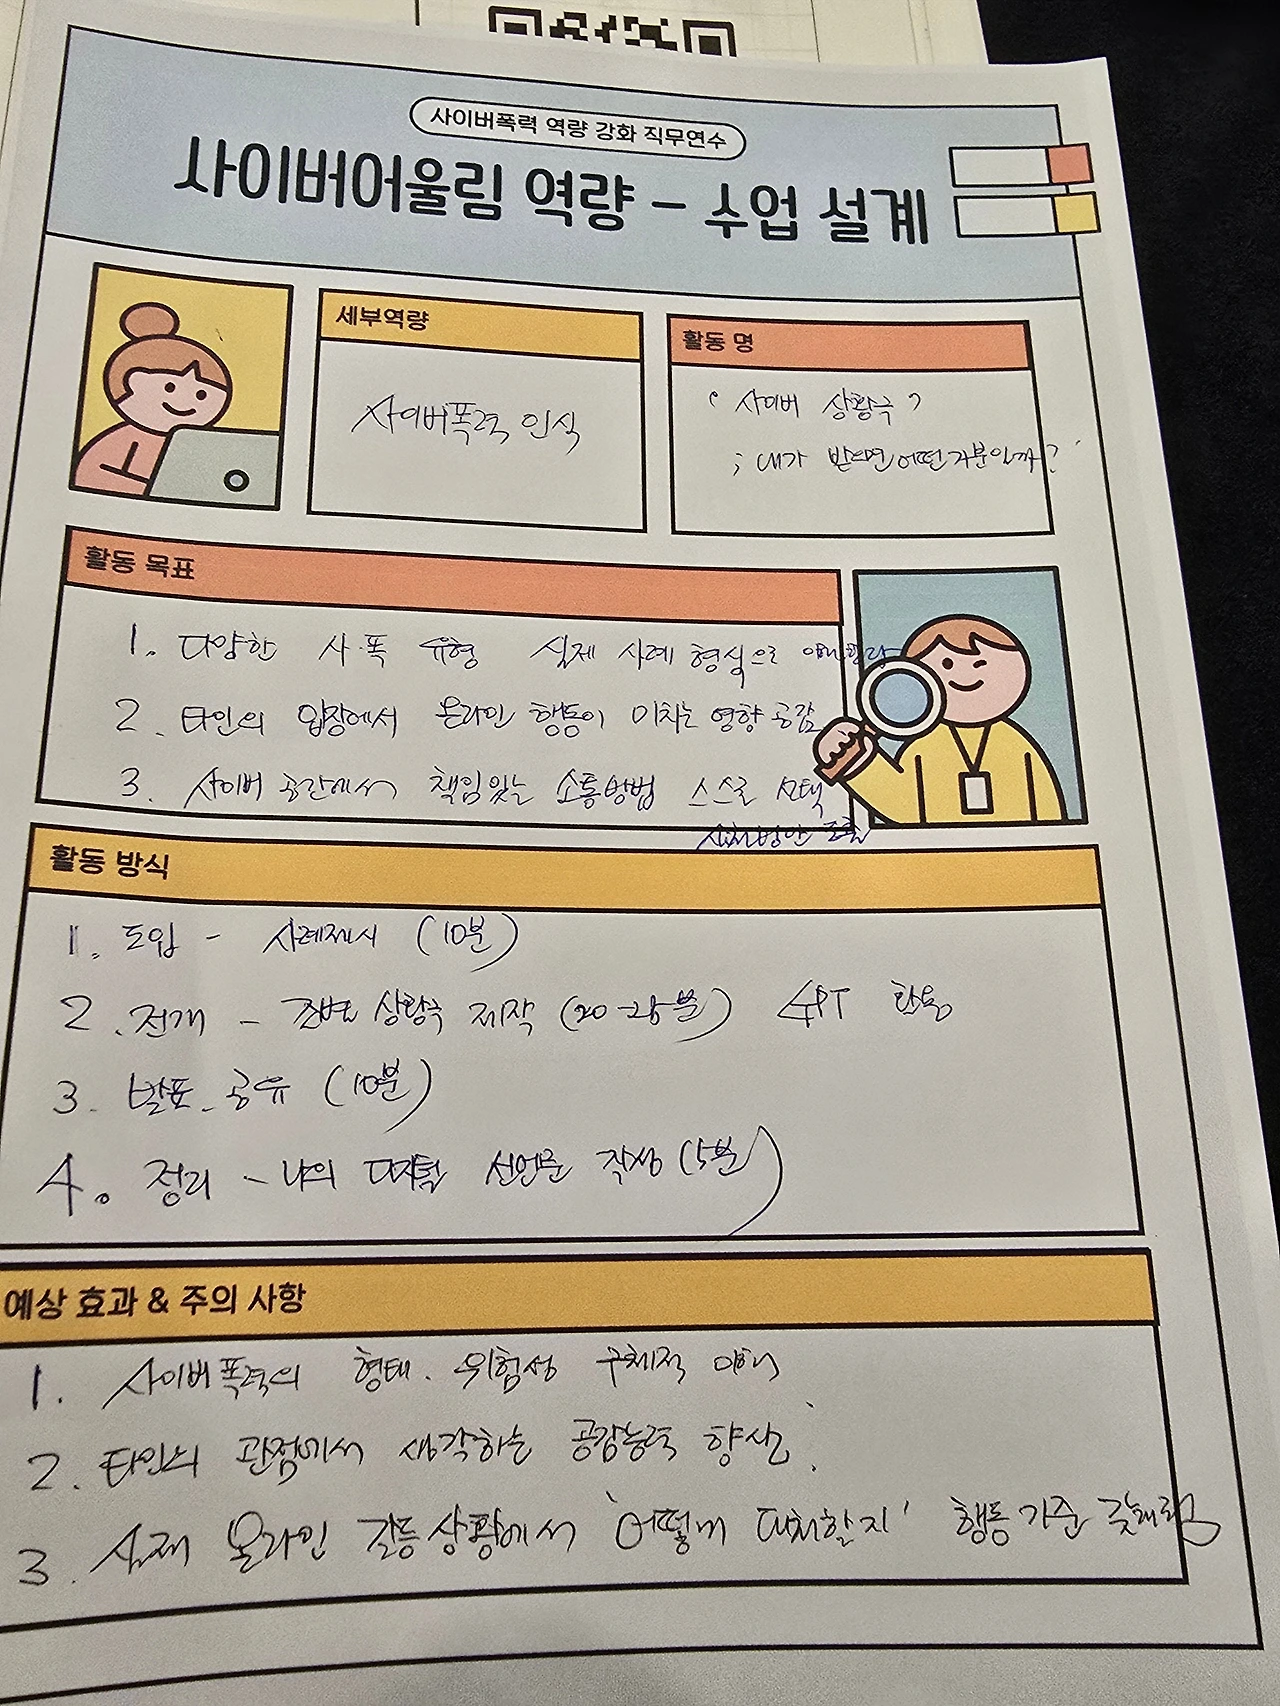 사이버폭력 역량 강화 직무연수
사이버어울림 역량 - 수업 설계
세부역량
사이버폭력 인식
활동 명
'사이버 상황극'
; 내가 받으면 어떤 기분일까?'
활동 목표
1. 다양한 사·폭 유형 실제 사례 형식으로
2. 타인의 입장에서 온라인 행동이 미치는 영향 공감
3. 사이버 공간에서 책임있는 소통방법 스스로 선택
실천방안 도출
활동 방식
1. 도입 - 사례제시 (10분)
2. 전개 - 조별 상황극 제작 (20-25분) GPT 활용
3. 발표. 공유 (10분)
4. 정리 - 나의 디지털 선언문 작성 (5분)
예상 효과 & 주의 사항
1. 사이버폭력의 형태. 위험성 구체적 이해
2. 타인의 관점에서 생각하는 공감능력 향상.
3. 실제 온라인 갈등상황에서 '어떻게 대처할지' 행동기준